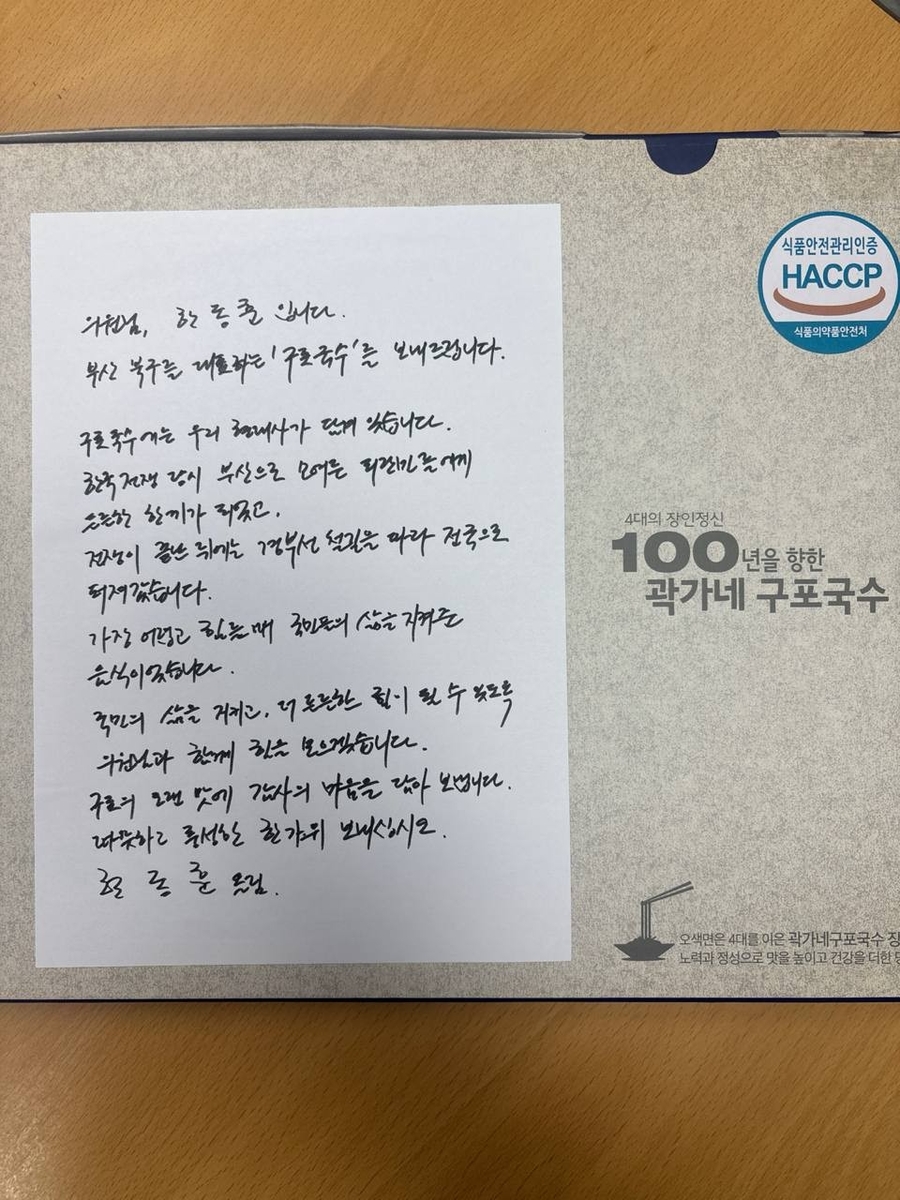 의원님, 한동훈 입니다.
부산 북구를 대표하는 '구포국수'를 보내드립니다.
구포국수에는 우리 현대사가 담겨 있습니다.
한국전쟁 당시 부산으로 모여든 피란민들에게
든든한 한끼가 되었고,
전쟁이 끝난 뒤에는 경부선 철길을 따라 전국으로
퍼져갔습니다.
가장 어렵고 힘들 때 국민들의 삶을 지켜준
음식이었습니다.
국민의 삶을 지키고, 더 든든한 힘이 될 수 있도록
의원님과 함께 힘을 모으겠습니다.
구포의 오랜 맛에 감사의 마음을 담아 보냅니다.
따뜻하고 풍성한 한가위 보내십시오.
한동훈 올림.
식품안전관리인증
HACCP
식품의약품안전처
4대의 장인정신
100년을 향한
곽가네 구포국수
오색면은 4대를 이은 곽가네구포국수 장
노력과 정성으로 맛을 높이고 건강을 더한